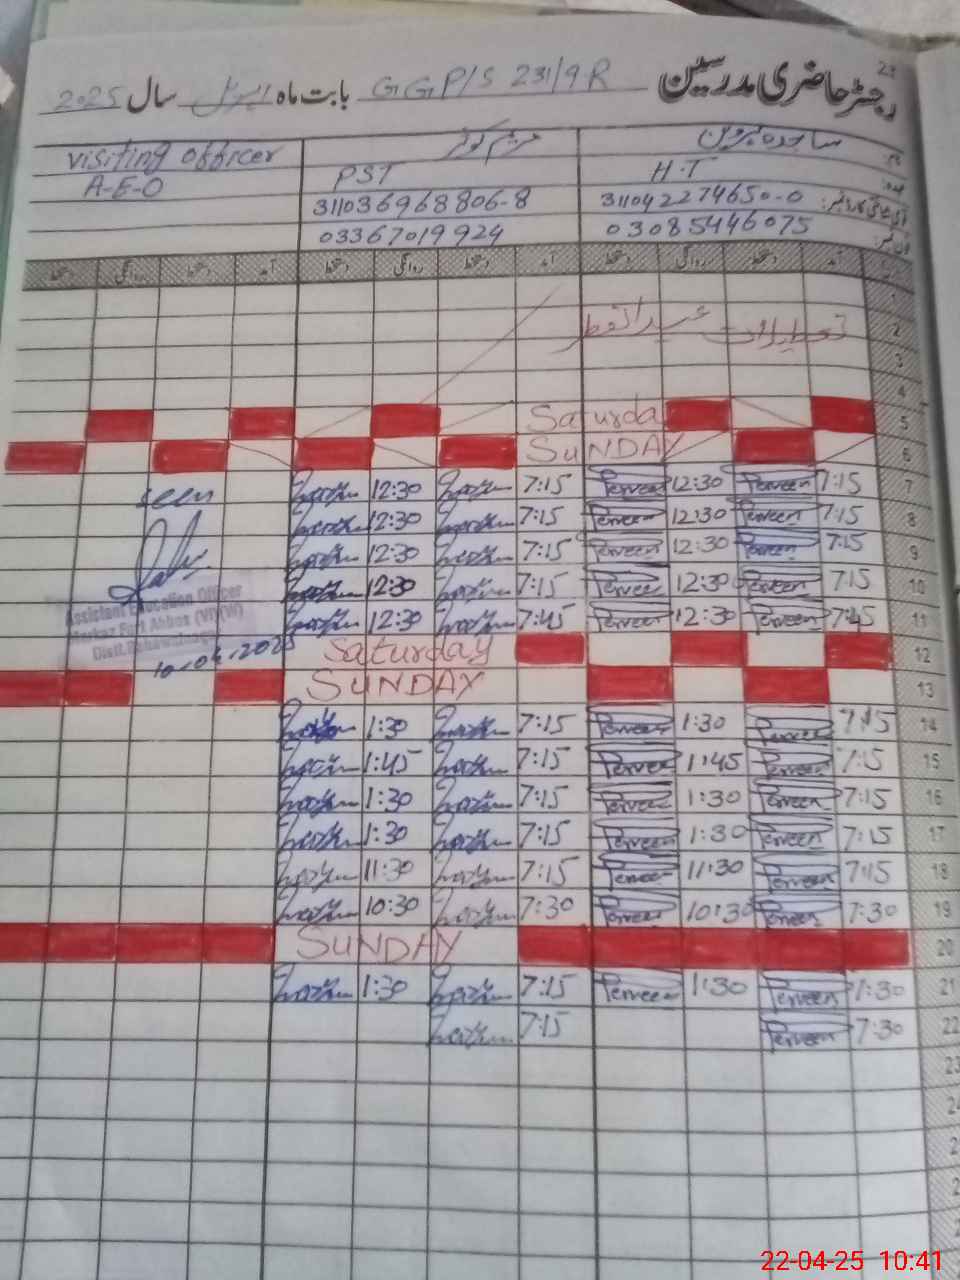 23
رجسٹر حاضری مدرسین GGP/S 231/9-R بابت ماہ اپریل سال 2025
ساجدہ پروین مریم کوثر visiting officer
عہدہ: H.T PST A-E-O
311042274650-0 311036968806-8
03085446075 03367019924
آمد دستخط روانگی دستخط آمد دستخط روانگی دستخط آمد دستخط روانگی دستخط
1
2 تعطیلات عید الفطر
3
4
5 Saturda
6 SUNDAY
7 7:15 Perveen 12:30 Perveen 7:15 12:30 seen
8 7:15 Perveen 12:30 Perveen 7:15 12:30
9 7:15 Perveen 12:30 Perveen 7:15 12:30
10 7:15 Perveen 12:30 Perveen 7:15 12:30
11 7:45 Perveen 12:30 Perveen 7:45 12:30
Assistant Education Officer
Markaz Fort Abbas (VI)(W)
Distt. Bahawalnagar
10-04-2025
12 Saturday
13 SUNDAY
14 7:15 Perveen 1:30 Perveen 7:15 1:30
15 7:15 Perveen 1:45 Perveen 7:15 1:45
16 7:15 Perveen 1:30 Perveen 7:15 1:30
17 7:15 Perveen 1:30 Perveen 7:15 1:30
18 7:15 Perveen 11:30 Perveen 7:15 11:30
19 7:30 Perveen 10:30 Perveen 7:30 10:30
20 SUNDAY
21 7:30 Perveen 1:30 Perveen 7:15 1:30
22 7:30 Perveen 7:15
23
22-04-25 10:41